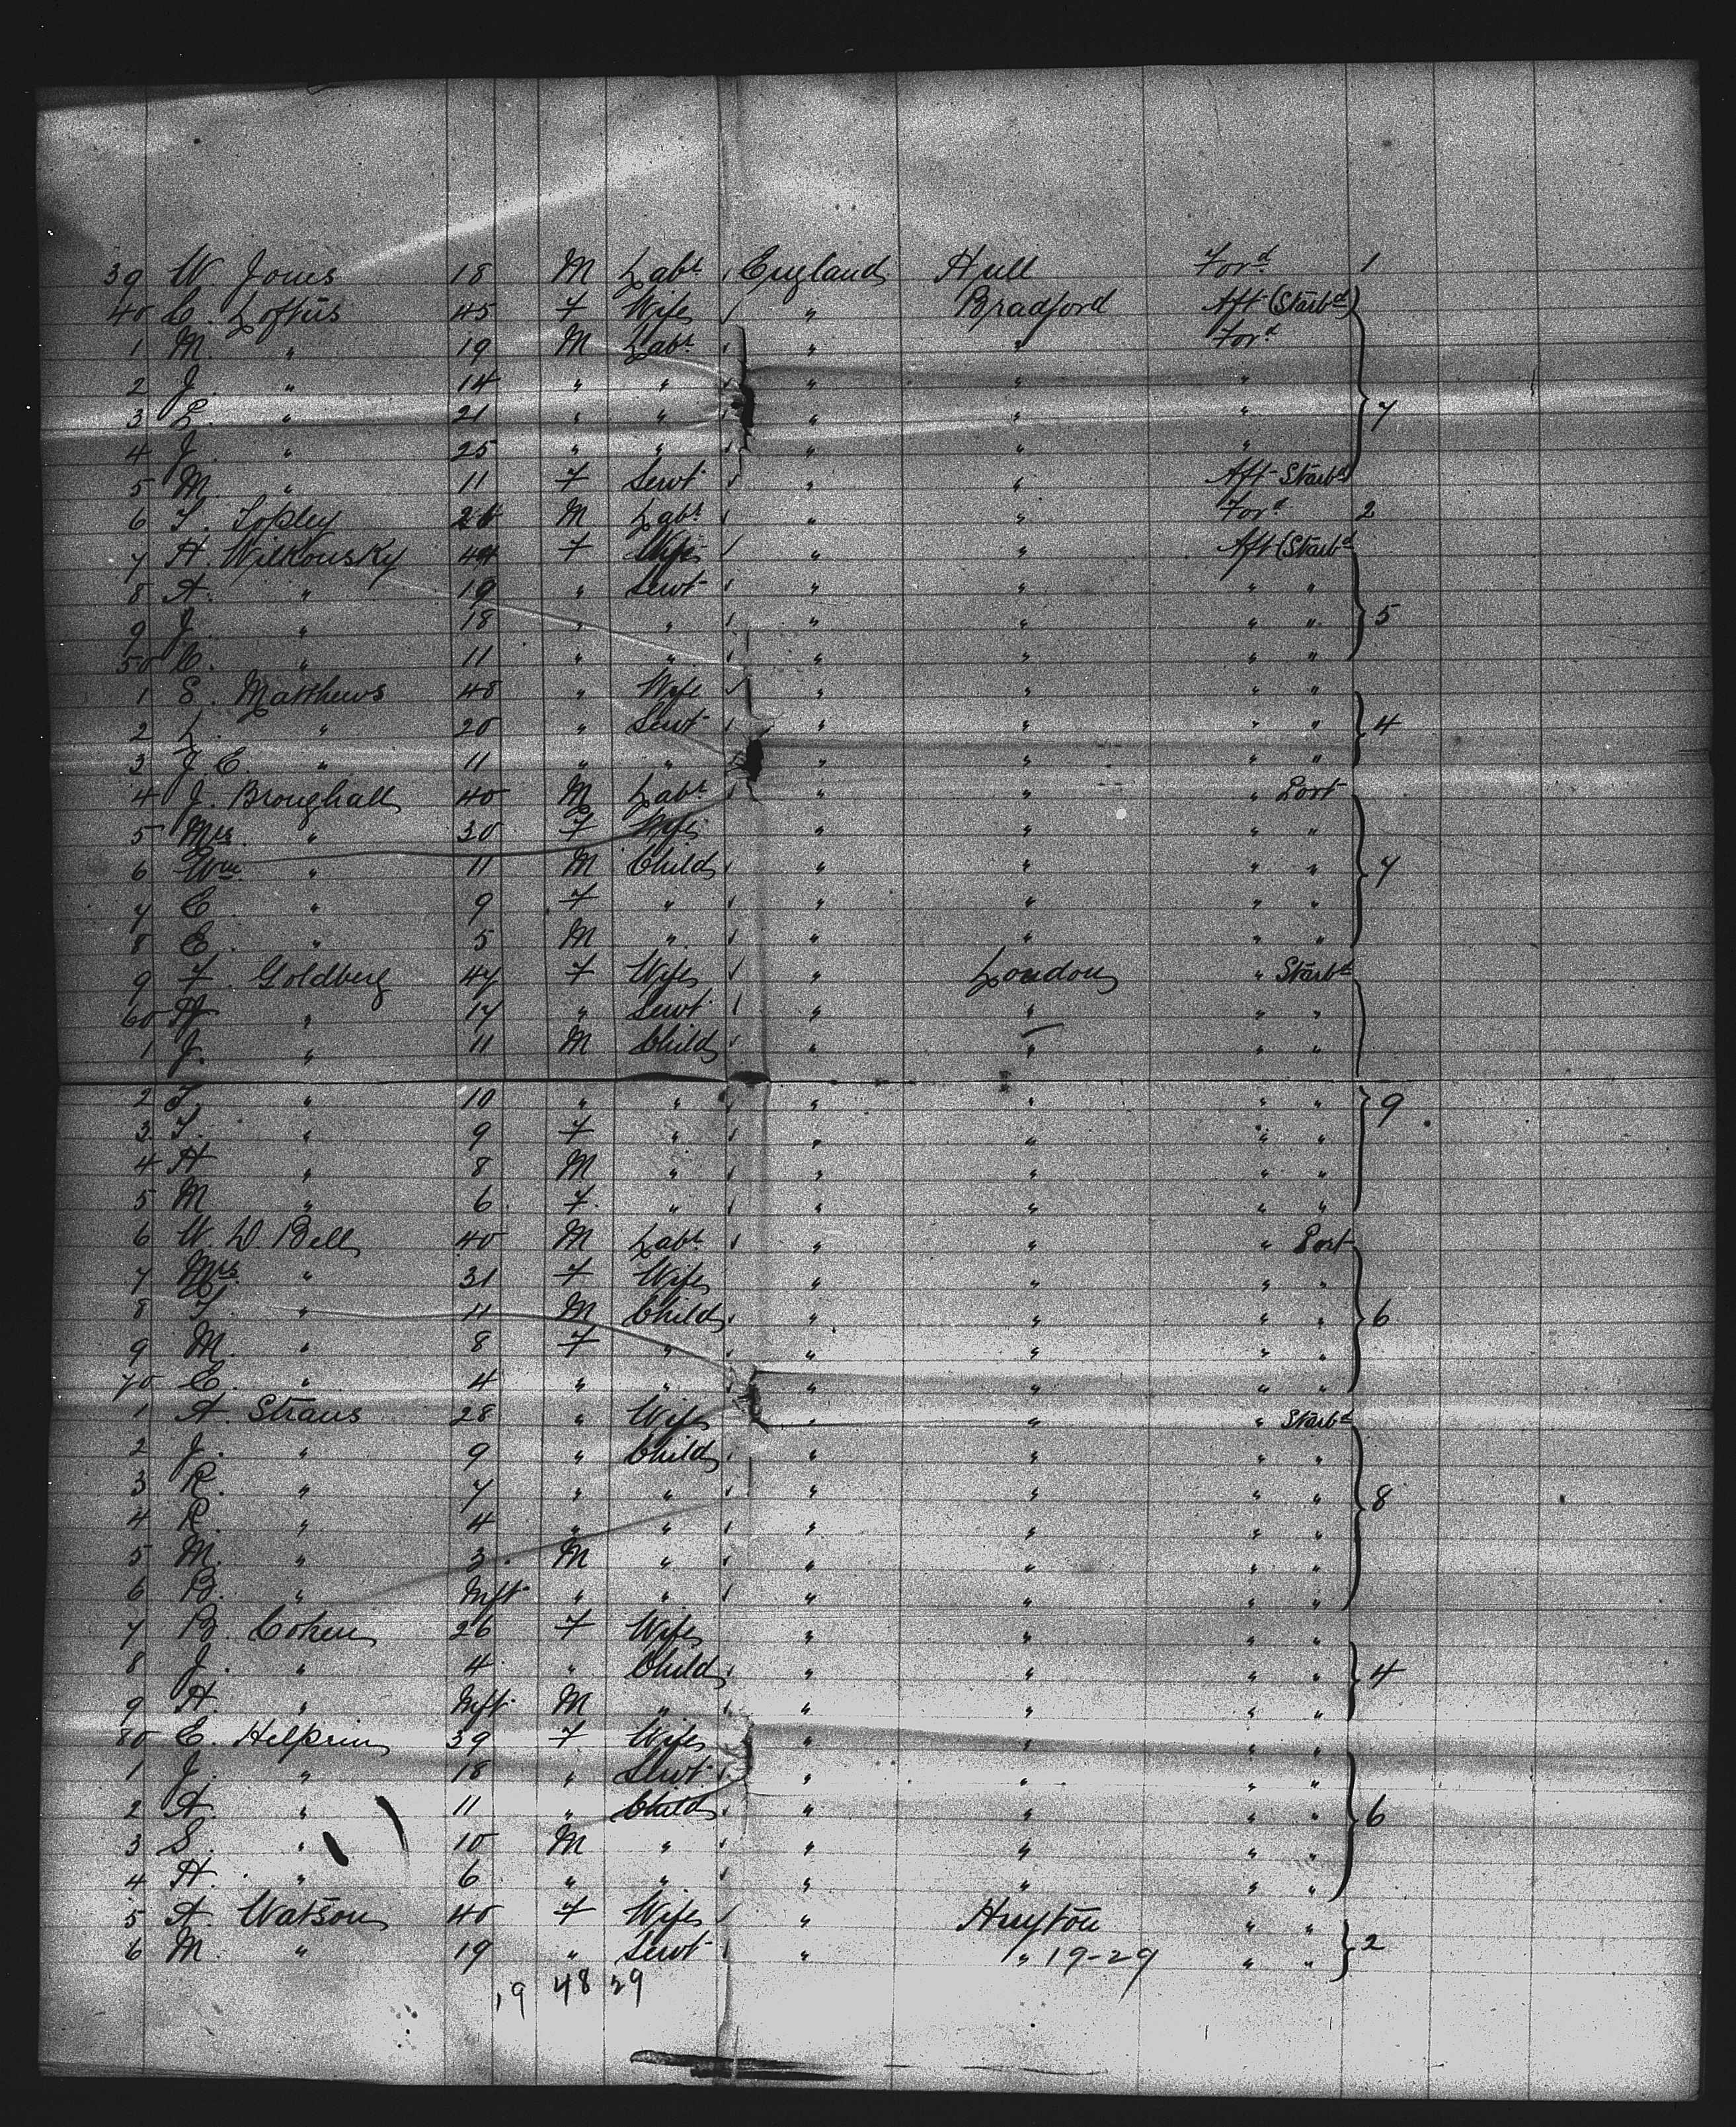 39 W. Jones 18 M Labr ✓ England Hull Ford 1
40 C. Loftus 45 F Wife ✓ " Bradford Aft (Starbd)
1 M. " 19 M Labr ✓ " " Ford
2 J. " 14 " " ✓ " " "
3 L. " 21 " " ✓ " " " 7
4 J. " 25 " " ✓ " " "
5 M. " 11 F Servt ✓ " " Aft Starbd
6 T. Topley M Labr ✓ " " Ford 2
7 H. Wilkousky F Wife ✓ " " Aft (Starbd
8 A. " 19 " Servt ✓ " " " "
9 J. " 18 " " ✓ " " " " 5
50 C. " 11 " " ✓ " " " "
1 S. Matthews 48 " Wife ✓ " " " "
2 L. " 20 " Servt ✓ " " " " 4
3 J C. " 11 " " ✓ " " " "
4 J. Broughall 40 M Labr ✓ " " " Port
5 Mrs " 30 F Wife " " " "
6 Wm " 11 M Child ✓ " " " " 7
7 E. " 9 F " ✓ " " " "
8 E. " 5 M " ✓ " " " "
9 F. Goldberg 47 F Wife ✓ " London " Starbd
60 " 17 " Servt ✓ " " " "
1 J. " 11 M Child ✓ " " " "
2 T. " 10 " " ✓ " " " " 9
3 T. " 9 F " ✓ " " " "
4 H " 8 M " ✓ " " " "
5 M " 6 F " ✓ " " " "
6 W. D. Bell 40 M Labr ✓ " " " Port
7 Mrs " 31 F Wife " " " "
8 T. " 11 M Child ✓ " " " " 6
9 M. " 8 F " ✓ " " " "
70 E. " 4 " " ✓ " " " "
1 A. Straus 28 " Wife " " " Starbd
2 J. " 9 " Child ✓ " " " "
3 R. " 7 " " ✓ " " " " 8
4 R. " 4 " " ✓ " " " "
5 M. " 3 M " ✓ " " " "
6 B. " Inft " " ✓ " " " "
7 B. Cohen 26 F Wife " " " "
8 J. " 4 " Child ✓ " " " " 4
9 H. " Inft M " ✓ " " " "
80 E. Helprin 39 F Wife " " " "
1 J. " 18 " Servt ✓ " " " "
2 A. " 11 " Child ✓ " " " " 6
3 S. " 10 M " ✓ " " " "
4 H. " 6 " " ✓ " " " "
5 A. Watson 40 F Wife ✓ " Huyton " "
6 M. " 19 " Servt ✓ " " 19-29 " " 2
19 48 29